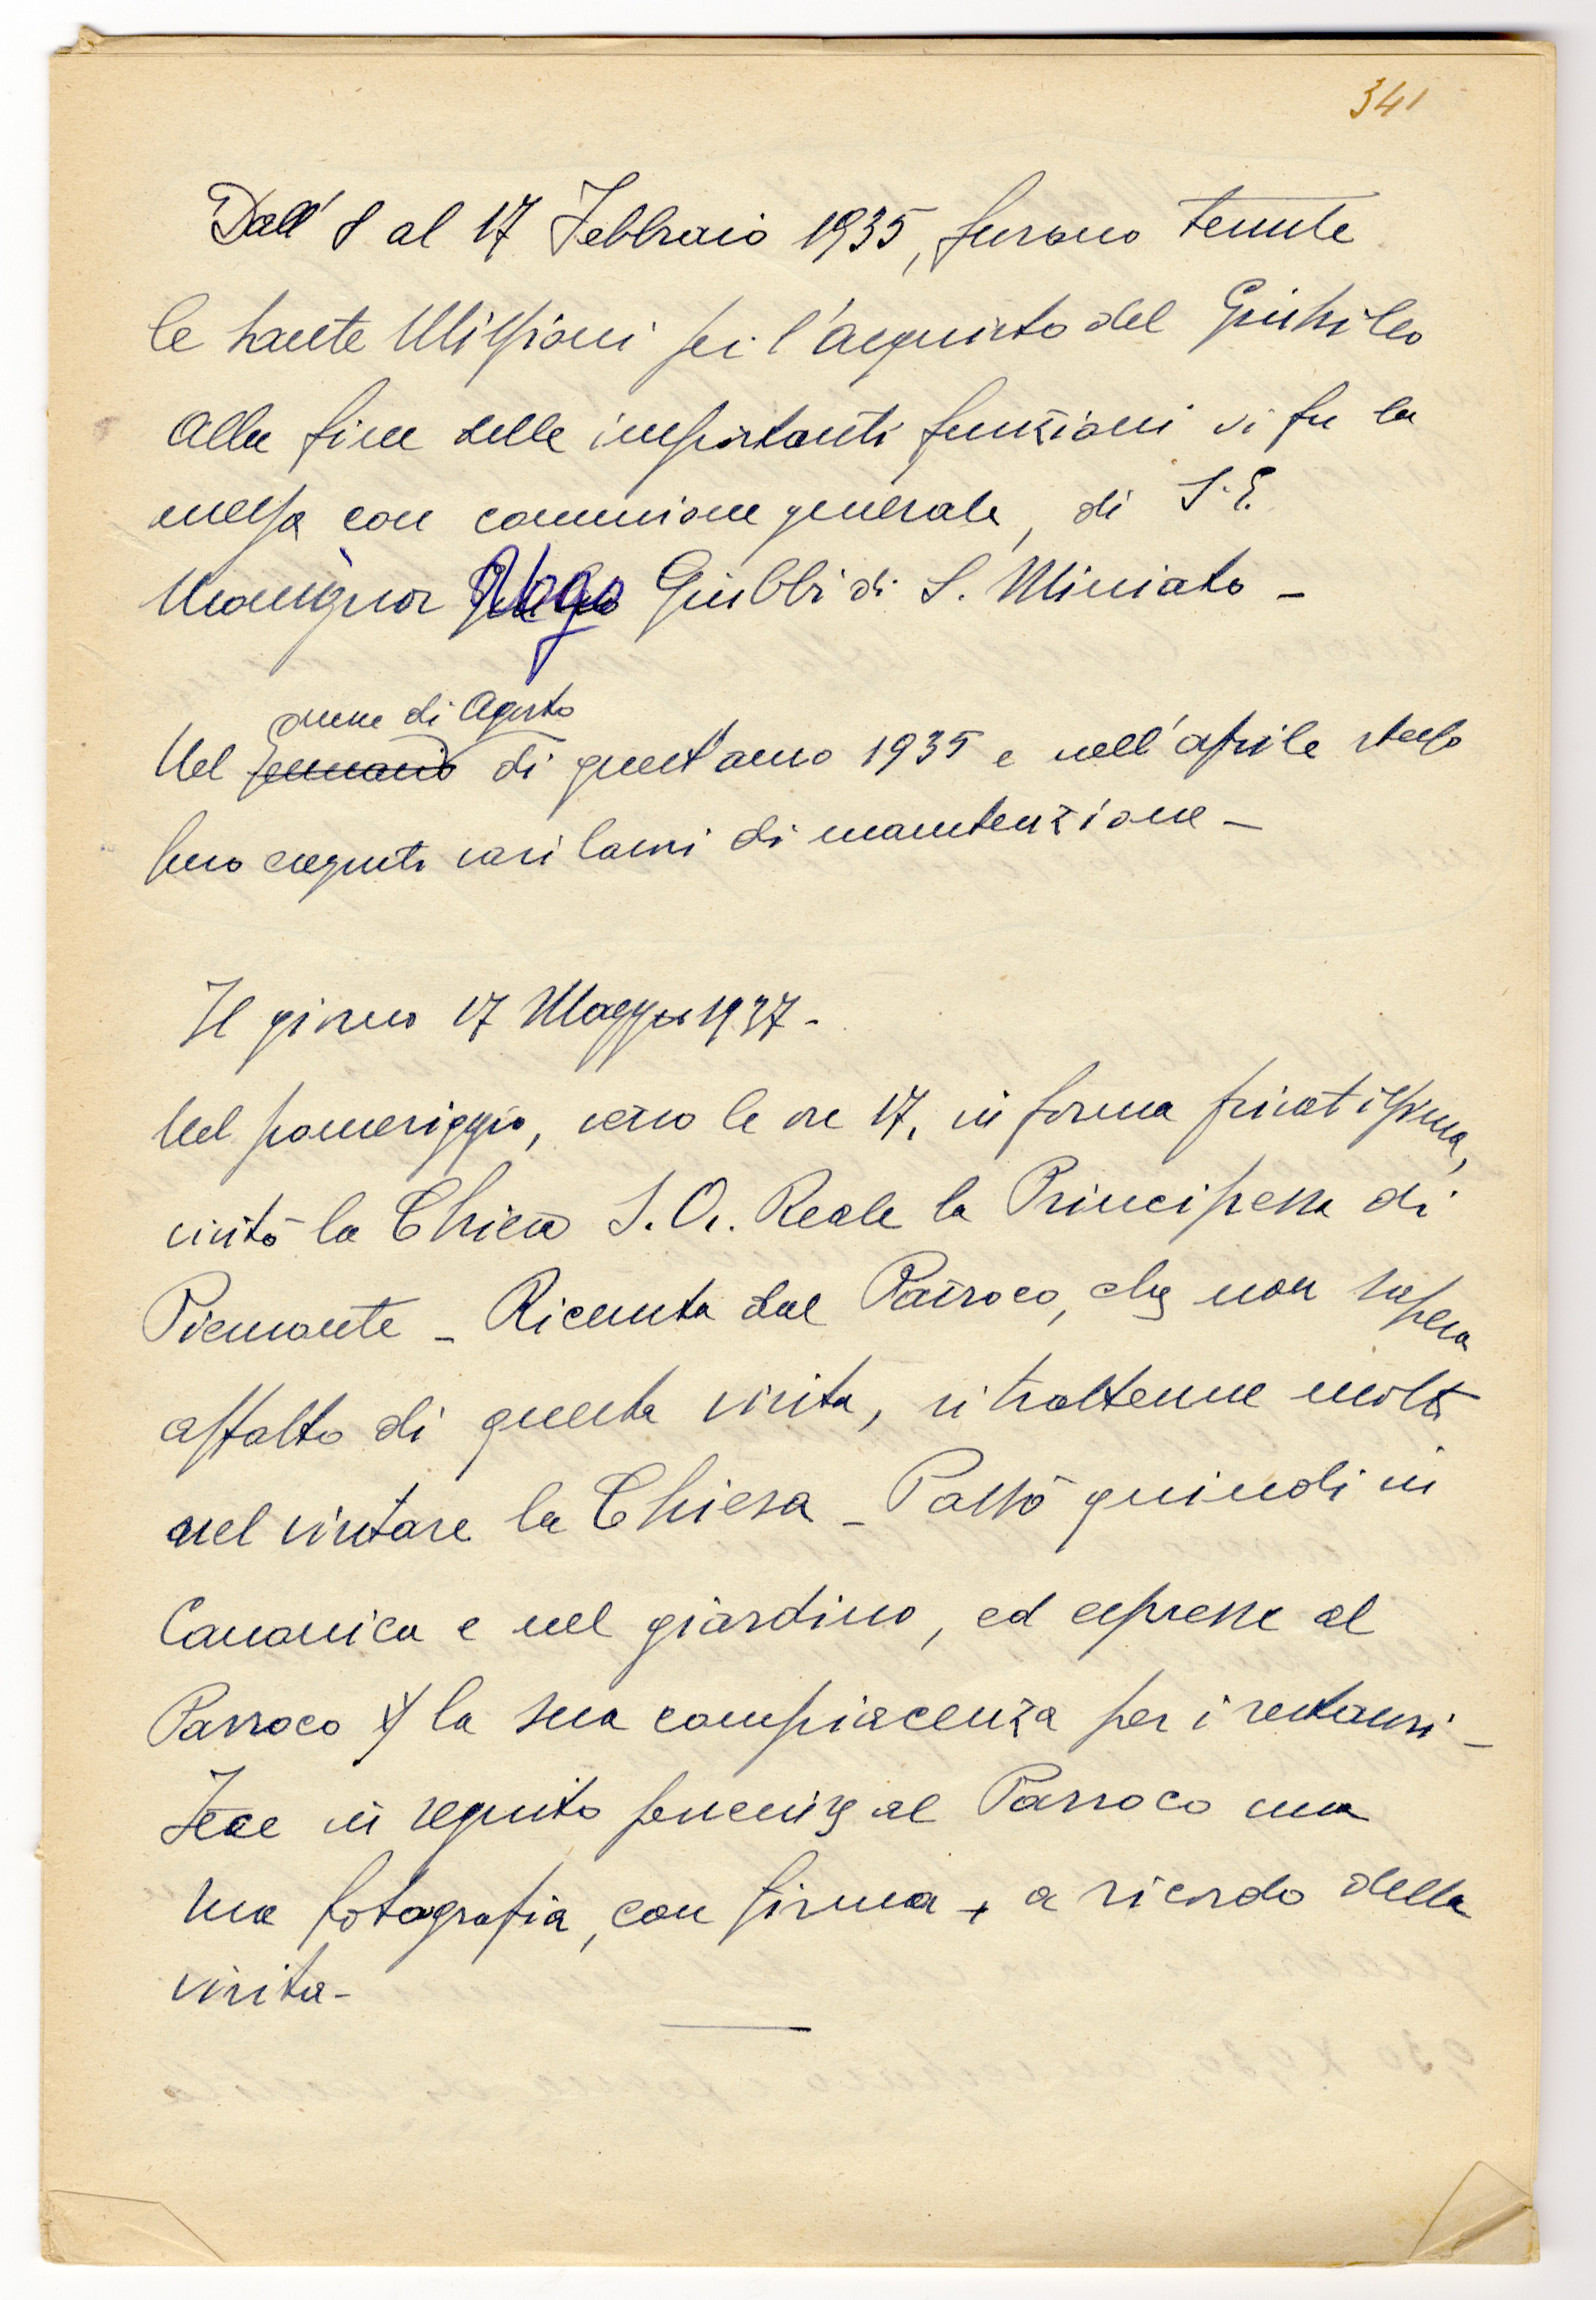 341
Dall' 8 al 17 Febbraio 1935, furono tenute
le Sante Missioni per l'acquisto del Giubileo
Alla fine delle importanti funzioni vi fu la
messa con comunione generale, di S. E.
Monsignor Ugo Giubbi di S. Miniato -
mese di Agosto
Nel Gennaio di quest'anno 1935 e nell'aprile stesso
furo eseguiti vari lavori di manutenzione -
Il giorno 17 Maggio 1937 -
Nel pomeriggio, verso le ore 17, in forma privatissima,
visitò la Chiesa S. A. Reale la Principessa di
Piemonte - Ricevuta dal Parroco, che non sapeva
affatto di questa visita, si trattenne molto
nel visitare la Chiesa - Passò quindi in
Canonica e nel giardino, ed espresse al
Parroco la sua compiacenza per i restauri -
Fece in seguito pervenire al Parroco una
sua fotografia, con firma, a ricordo della
visita -